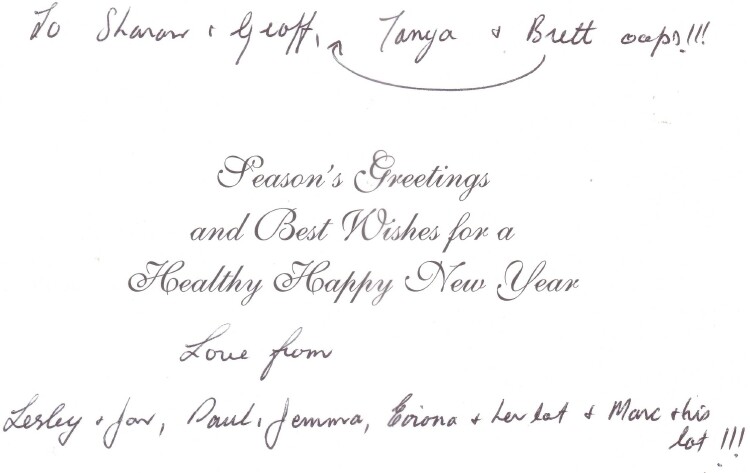 To Sharon & Geoff, Tanya & Brett oops!!!
Season's Greetings
and Best Wishes for a
Healthy Happy New Year
Love from
Lesley & Jon, Paul, Jemma, & her lot & Marc & his
lot !!!